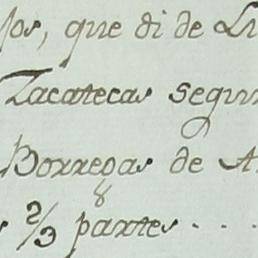 que di de
Zacatecas segun
Borregas de
8
2/3 partes